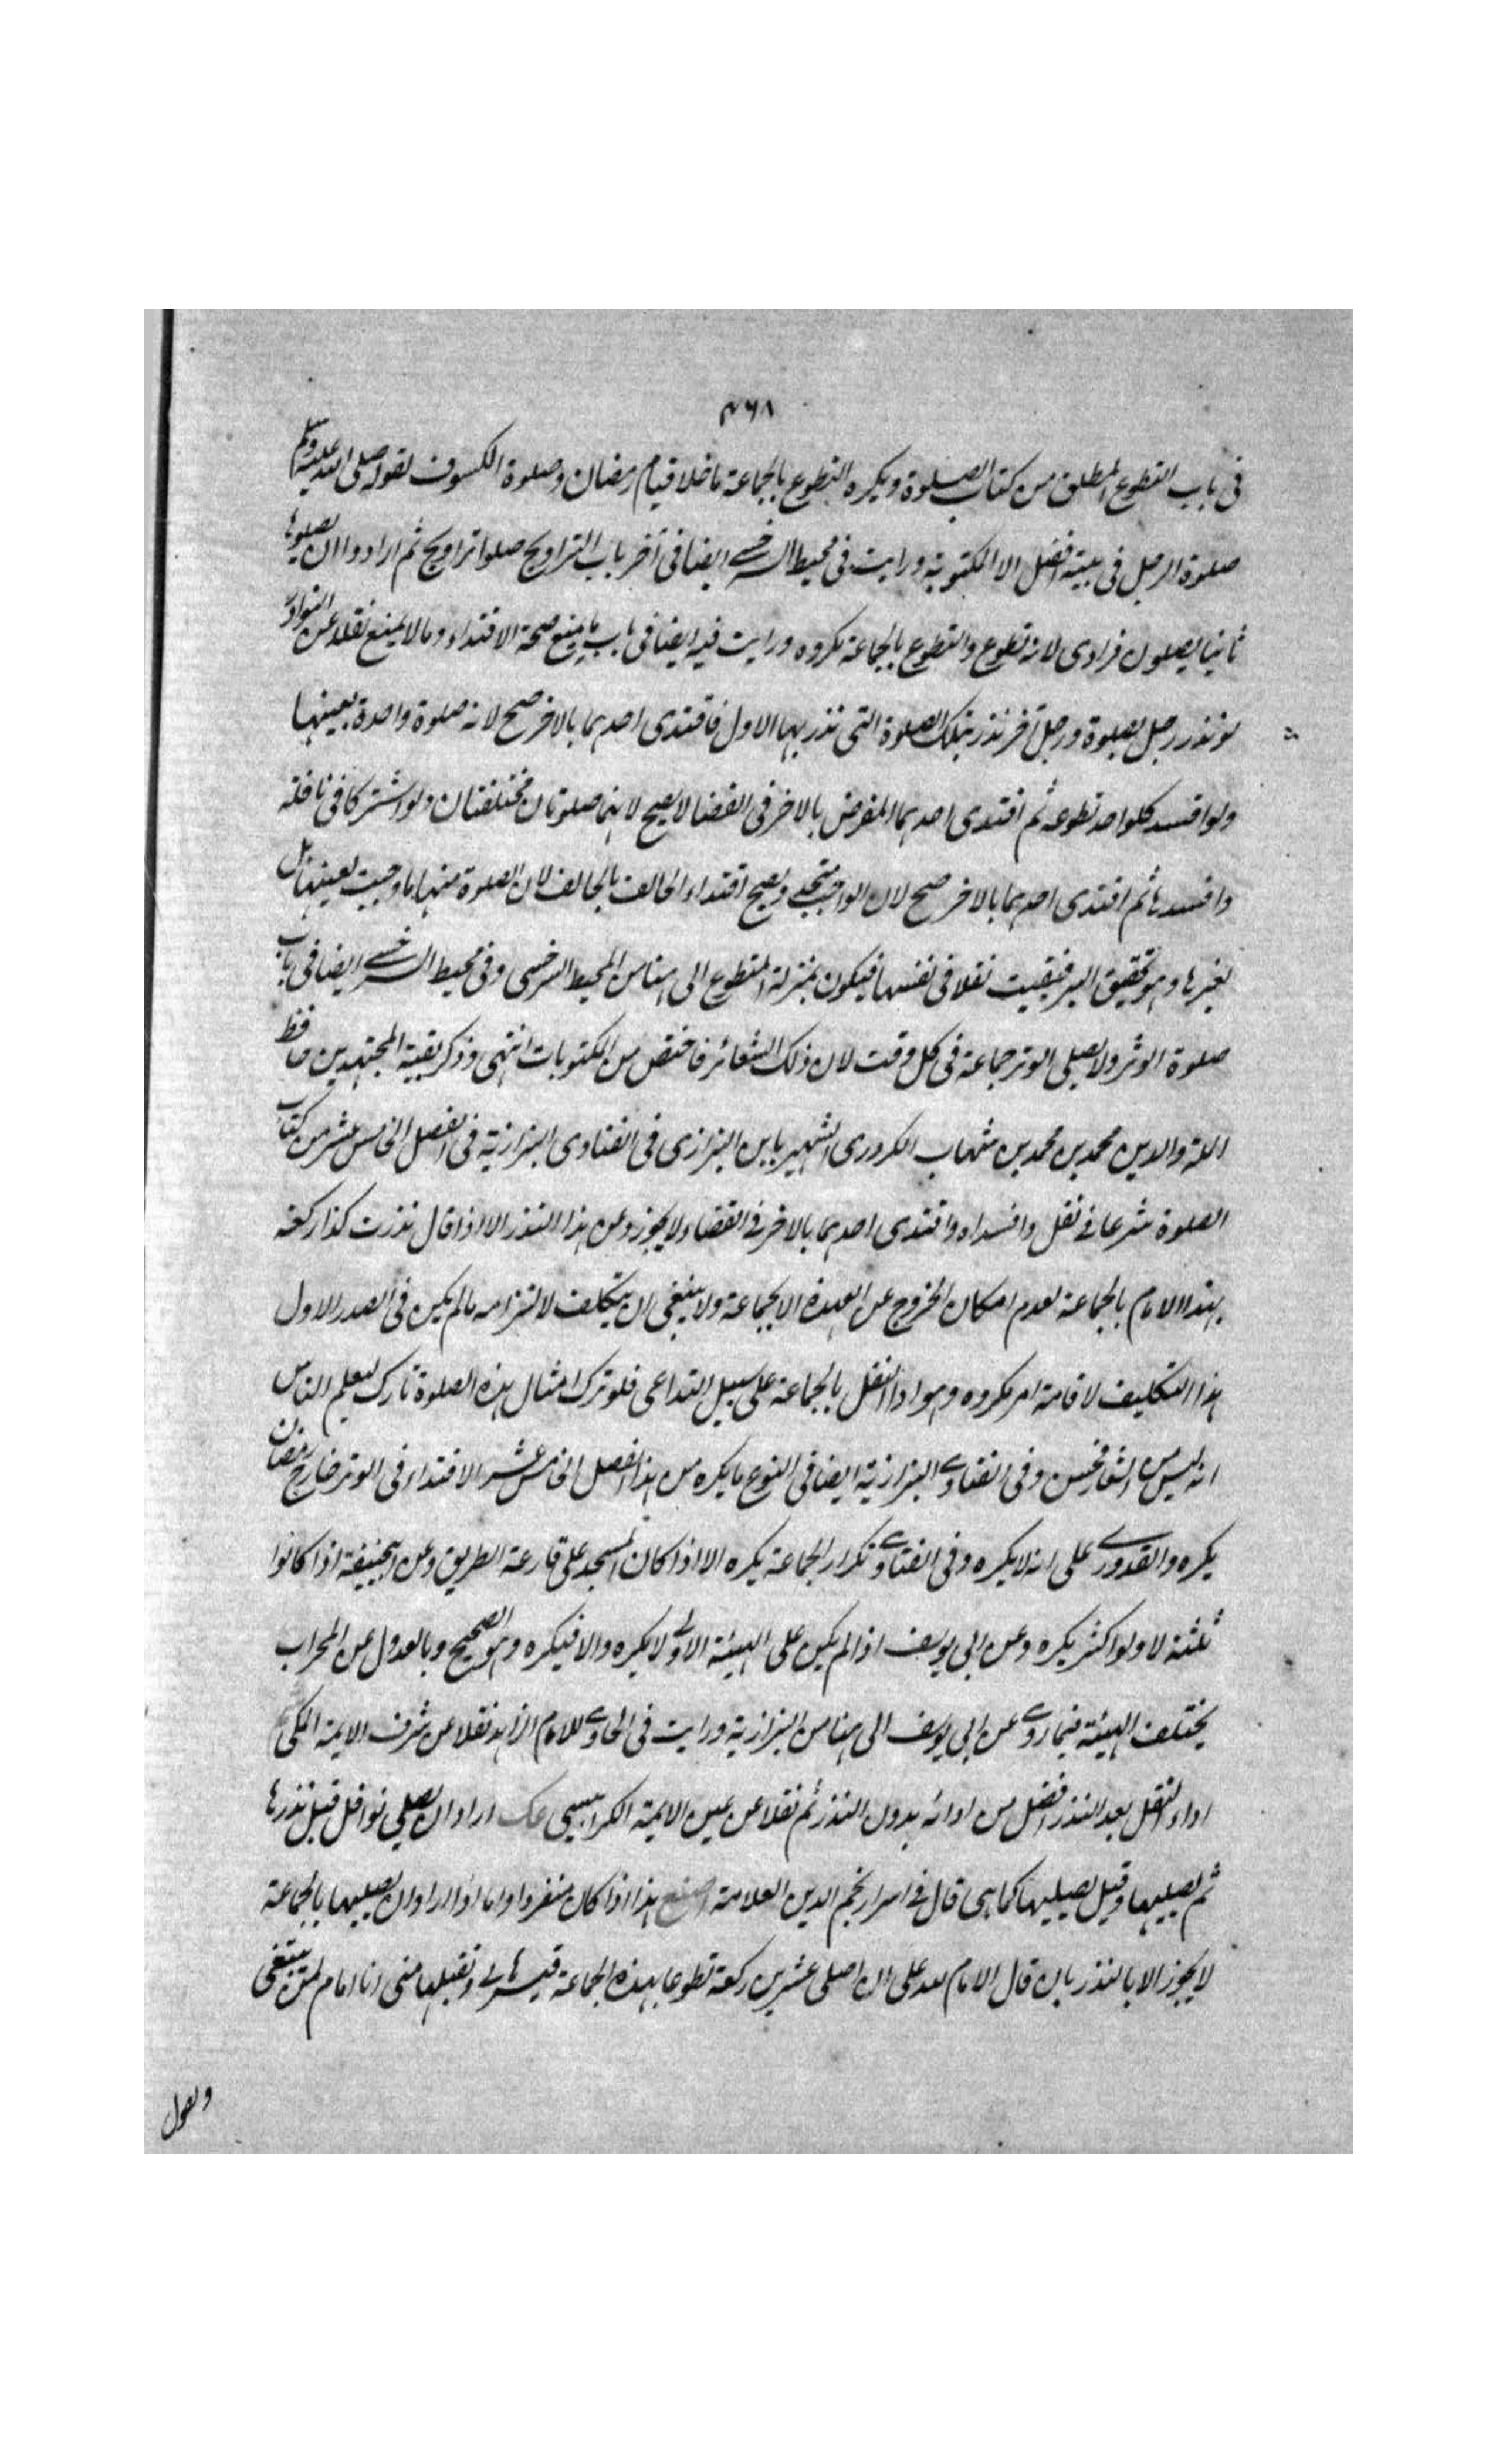 ۴۶۸
فى باب التطوع المطلق من كتاب الصلوة ويكره التطوع بالجماعة ما خلا قيام رمضان وصلوة الكسوف لقوله صلى الله عليه وسلم
صلوة الرجل فى بيته افضل الا المكتوبة ورايت فى محيط السرخسے ايضا فى آخر باب التراويح صلوا تراويح ثم ارادوا ان يصلوها
ثانيا يصلون فرادى لانه تطوع والتطوع بالجماعة مكروه ورايت فيه ايضا فى باب ما يمنع صحة الاقتداء وما لا يمنع نقلا عن النوادر
لو نذر رجل بصلوة ورجل آخر نذر بتلك الصلوة التى نذر بها الاول فاقتدى احدهما بالاخر صح لانه صلوة واحدة بعينها
ولو افسد كلواحد تطوعه ثم اقتدى احدهما المفرض بالاخر فى القضا لا يصح لانهما صلوتان مختلفتان ولو اشتركا فى نافلة
وافسدها ثم اقتدى احدهما بالاخر صح لان الواجب متحد ويصح اقتداء الحالف بالحالف لان الصلوة منهما ما وجبت لعينها بل
لغيرها وهو تحقيق البر فبقيت نفلا فى نفسها فيكون بمنزلة المتطوع الى هنا من المحيط السرخسى وفى محيط السرخسے ايضا فى باب
صلوة الوتر ولا يصلى الوتر جماعة فى كل وقت لان ذلك الشعائر فاختص من المكتوبات انتهى وذكر بقية المجتهدين حافظ
الملة والدين محمد بن محمد بن شهاب الكرورى الشهير بابن البزازى فى الفتاوى البزازية فى الفصل الخامس عشر من كتاب
الصلوة شرعا فى نفل وافسداه واقتدى احدهما بالاخر فى القضاء لا يجوز وعن هذا النذر الا اذا قال نذرت كذا ركعة
بهذا الامام بالجماعة لعدم امكان الخروج عن العهدة الا بالجماعة ولا ينبغى ان يتكلف لالتزامه مالم يكن فى الصدر الاول
هذا التكليف لاقامة امر مكروه وهو اداء النفل بالجماعة على سبيل التداعى فلو ترك امثال هذه الصلوة تارك ليعلم الناس
انه ليس من الشعار فحسن وفى الفتاوے البزازية ايضا فى النوع ما يكره من هذا الفصل الخامس عشر الاقتداء فى الوتر خارج رمضان
يكره والقدورے على انه لا يكره وفى الفتاوے تكرار الجماعة يكره الا اذا كان المسجد على قارعة الطريق وعن ابيحنيفة اذا كانوا
ثلثة لا ولو اكثر يكره وعن ابى يوسف اذا لم يكن على الهيئة الاولے لا يكره والا فيكره وهو الصحيح وبالعدول عن المحراب
يختلف الهيئة فيما روے عن ابى يوسف الى هنا من البزازية ورايت فى الحاوے للامام الزاهد نقلا عن شرف الايمة المكى
اداء النفل بعد النذر افضل من ادائه بدون النذر ثم نقلا عن عين الايمة الكرابيسى عك اراد ان يصلى نوافل قيل نذرها
ثم يصليها وقيل يصليها كما هى قال فى اسرار نجم الدين العلامة اصنع هذا اذا كان منفردا واما اذا اراد ان يصليها بالجماعة
لا يجوز الا بالنذر بان قال الامام لله على ان اصلى عشرين ركعة تطوعا بهذه الجماعة فيسرها لى وتقبلها منى انا امام لمن يتبعنى
ويقول